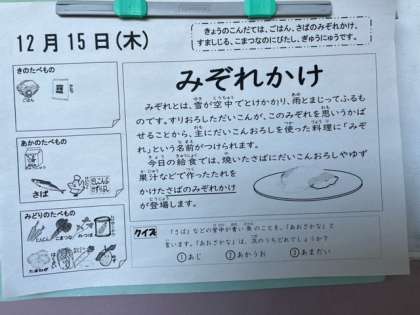 12月15日(木)
きょうのこんだては、ごはん、さばのみぞれかけ、
すましじる、こまつなのにびたし、ぎゅうにゅうです。
きのたべもの
ごはん
あかのたべもの
さば
みどりのたべもの
にんじん
こまつな
たまねぎ
みぞれかけ
みぞれとは、雪が空中でとけかかり、雨とまじってふるも
のです。すりおろしただいこんが、このみぞれを思いうかば
せることから、主にだいこんおろしを使った料理に「みぞ
れ」という名前がつけられます。
今日の給食では、焼いたさばにだいこんおろしやゆず
果汁などで作ったたれを
かけたさばのみぞれかけ
が登場します。
クイズ
「さば」などの背中が青い魚のことを、「あおざかな」と
言います。「あおざかな」は、次のうちどれでしょうか?
①あじ ②あかうお ③あまだい